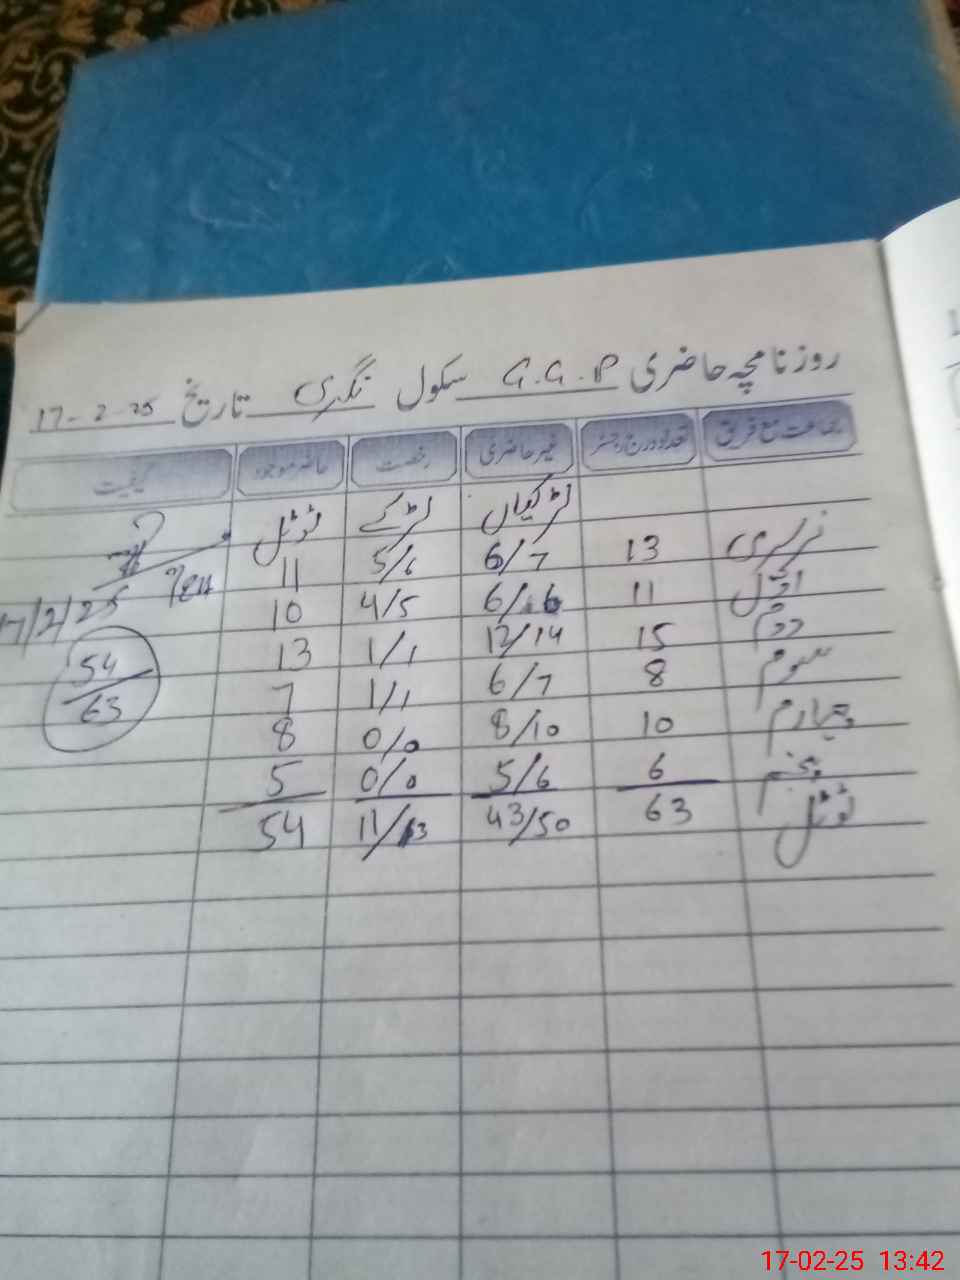 روزنامچہ حاضری G.G.P سکول نگری تاریخ 17-2-25
جماعت مع فریق تعداد درج رجسٹر غیر حاضری رخصت حاضر موجود کیفیت
لڑکیاں لڑکے ٹوٹل
نرسری 13 6/7 5/6 11
اوّل 11 6/6 4/5 10
دوم 15 12/14 1/1 13
سوم 8 6/7 1/1 7
چہارم 10 8/10 0/0 8
پنجم 6 5/6 0/0 5
ٹوٹل 63 43/50 11/13 54
17/2/25
54/63
17-02-25 13:42